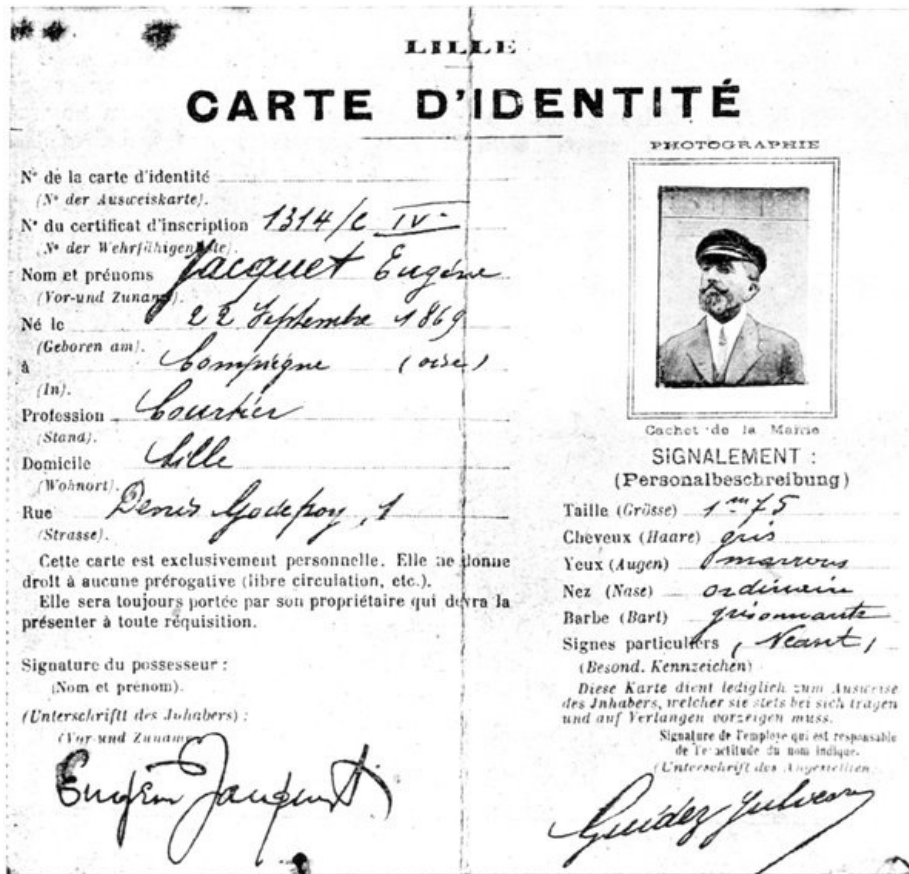 LILLE
CARTE D'IDENTITÉ
N° de la carte d'identité
(N° der Ausweiskarte).
N° du certificat d'inscription 1314/C IV
(N° der Wehrfähigenliste).
Nom et prénoms Jacquet Eugène
(Vor-und Zuname).
Né le 22 Septembre 1869
(Geboren am).
à Compiègne (oise)
(In).
Profession Courtier
(Stand).
Domicile Lille
(Wohnort).
Rue Denis Godefroy, 1
(Strasse).
Cette carte est exclusivement personnelle. Elle ne donne
droit à aucune prérogative (libre circulation, etc.).
Elle sera toujours portée par son propriétaire qui devra la
présenter à toute réquisition.
Signature du possesseur :
(Nom et prénom).
(Unterschriftt des Johabers) :
(Vor-und Zuname
Eugène Jacquet
PHOTOGRAPHIE
Cachet de la Mairie
SIGNALEMENT :
(Personalbeschreibung)
Taille (Grösse) 1m75
Cheveux (Haare) gris
Yeux (Augen) marrons
Nez (Nase) ordinaire
Barbe (Bart) grisonnante
Signes particuliers (Néant)
(Besond. Kennzeichen)
Diese Karte dient lediglich zum Ausweise
des Jnhabers, welcher sie stets bei sich tragen
und auf Verlangen vorzeigen muss.
Signature de l'employe qui est responsable
de l'exactitude du nom indique.
(Unterschrift des Angestellten
Guidez